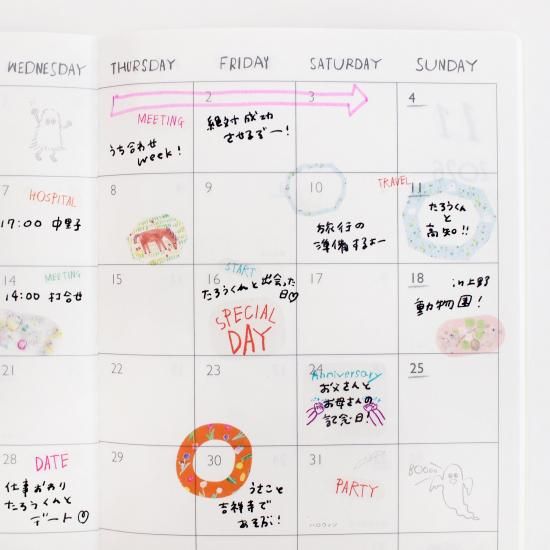 WEDNESDAY THURSDAY FRIDAY SATURDAY SUNDAY
2 3 4
MEETING
うち合わせ
week!
絶対成功
させるぞー!
7 8 9 10 11
HOSPITAL
17:00 中里子
TRAVEL
旅行の
準備するよー
たろうくん
と
高知!!
14 15 16 17 18
MEETING
14:00 打合せ
START
たろうくんと出会った
日♡
SPECIAL
DAY
in上野
動物園!
21 22 23 24 25
Anniversary
お父さんと
お母さんの
記念日!
28 29 30 31
DATE
仕事おわり
たろうくんと
デート♡
うさこと
吉祥寺で
あそぶ!
PARTY
ハロウィン
BOooo